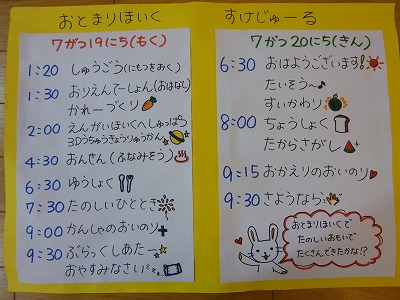 おとまりほいく すけじゅーる
7がつ19にち(もく)
1:20 しゅうごう(にもつをおく)
1:30 おりえんてーしょん(おはなし)
かれーづくり
2:00 えんがいほいくへしゅっぱつ
3Dうちゅうきょうりゅうかん
4:30 おんせん(ふなみそう)
6:30 ゆうしょく
7:30 たのしいひととき
9:00 かんしゃのおいのり
9:30 ぶらっくしあたー
おやすみなさい
7がつ20にち(きん)
6:30 おはようございます!
たいそう〜♪
すいかわり
8:00 ちょうしょく
たからさがし
9:15 おかえりのおいのり
9:30 さようなら
おとまりほいくで
たのしいおもいで
たくさんできたかな!?